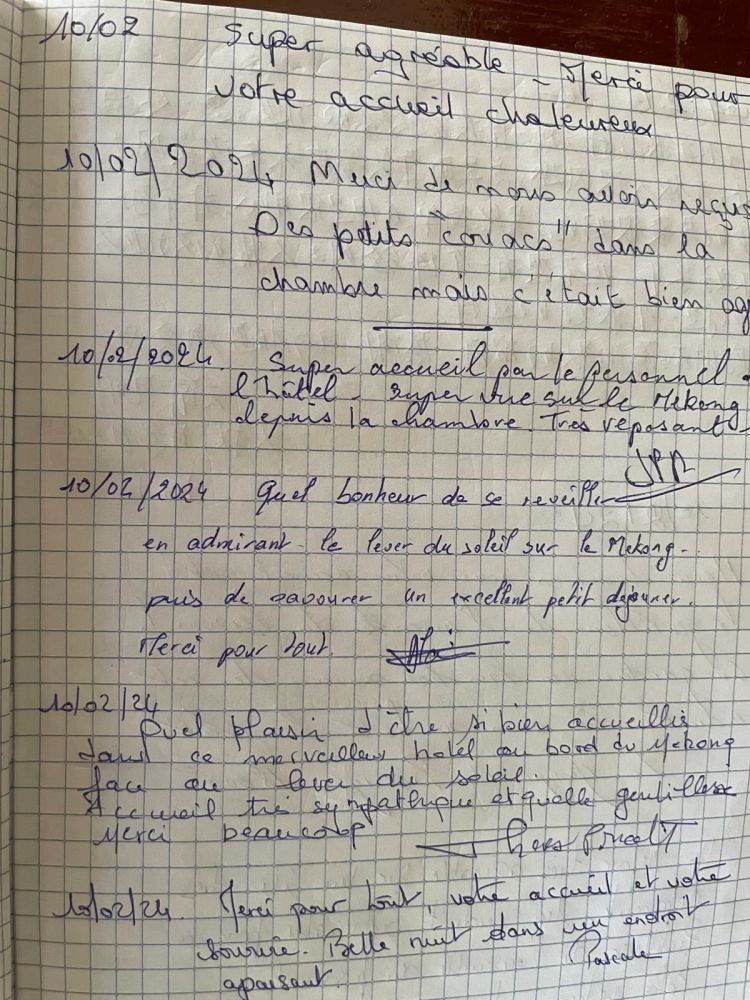 10/02 Super agréable - Merci pour
votre accueil chaleureux
10/02/2024 Merci de nous avoir reçus
Des petits "couacs" dans la
chambre mais c'était bien ag
10/02/2024. Super accueil par le personnel
l'hôtel - super vue sur le Mekong
depuis la chambre. Très reposant
JPR
10/02/2024 Quel bonheur de se reveiller
en admirant le lever du soleil sur le Mekong.
puis de savourer un excellent petit dejeuner.
Merci pour tout.
10/02/24
Quel plaisir d'être si bien accueillis
dans ce merveilleux hotel au bord du Mekong
face au lever du soleil.
Accueil très sympathique et quelle gentillesse
Merci beaucoup
10/02/24. Merci pour tout, votre accueil et votre
sourire. Belle nuit dans un endroit
apaisant. Pascale